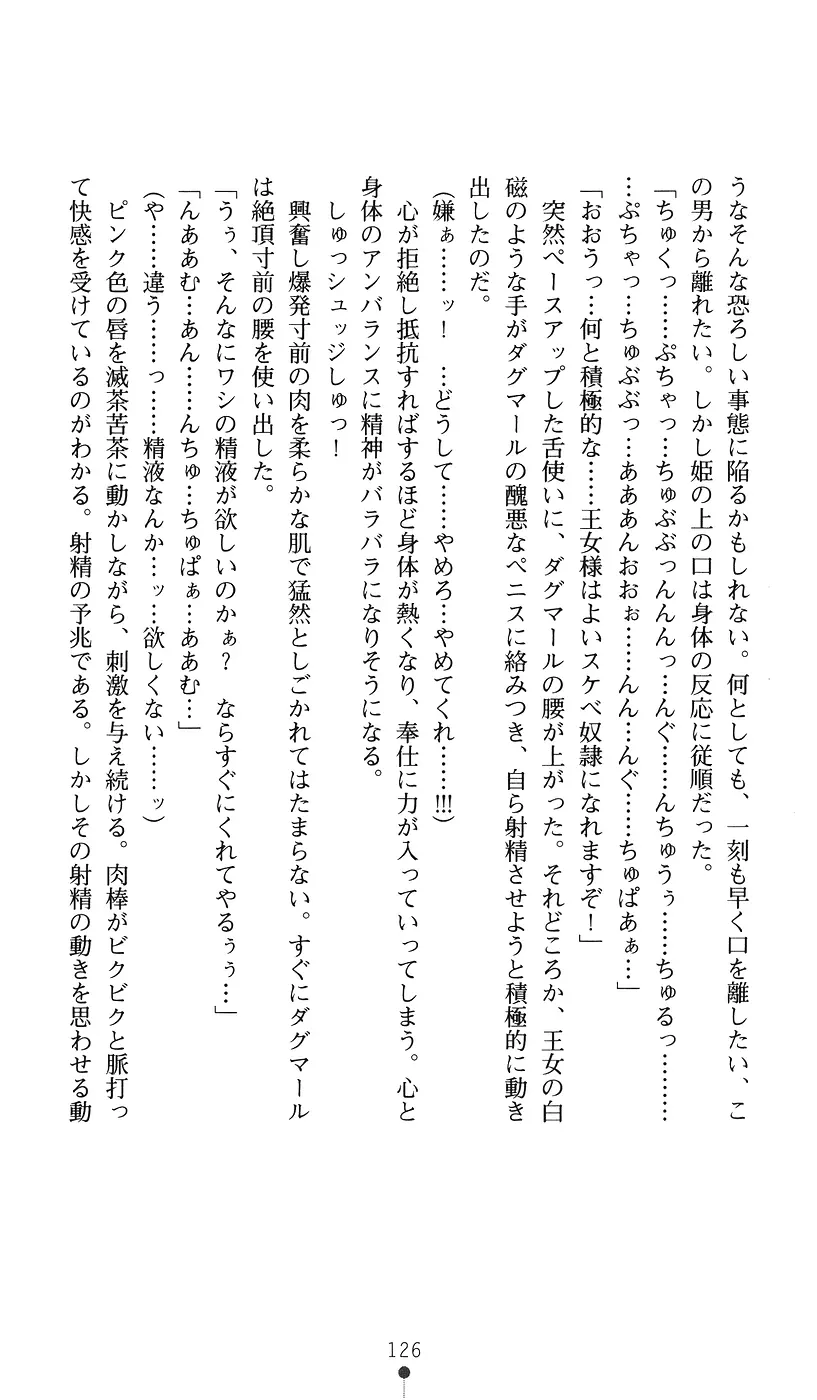 うなそんな恐ろしい事態に陥るかもしれない。何としても、一刻も早く口を離したい、こ
の男から離れたい。しかし姫の上の口は身体の反応に従順だった。
「ちゅくっ……ぷちゃっ…ちゅぶぶっんんんっ…んぐ……んちゅうぅ……ちゅるっ………
…ぷちゃっ…ちゅぶぶっ…あああんおおぉ……んん…んぐ……ちゅぱあぁ…」
「おおうっ…何と積極的な……王女様はよいスケベ奴隷になれますぞ！」
　突然ペースアップした舌使いに、ダグマールの腰が上がった。それどころか、王女の白
磁のような手がダグマールの醜悪なペニスに絡みつき、自ら射精させようと積極的に動き
出したのだ。
（嫌ぁ……ッ！　…どうして……やめろ…やめてくれ……!!!）
　心が拒絶し抵抗すればするほど身体が熱くなり、奉仕に力が入っていってしまう。心と
身体のアンバランスに精神がバラバラになりそうになる。
　しゅっシュッジしゅっ！
　興奮し爆発寸前の肉を柔らかな肌で猛然としごかれてはたまらない。すぐにダグマール
は絶頂寸前の腰を使い出した。
「うぅ、そんなにワシの精液が欲しいのかぁ？　ならすぐにくれてやるぅぅ…」
「んああむ…あん……んちゅ…ちゅぱぁ…ああむ…」
（や……違う……っ……精液なんか…ッ…欲しくない……ッ）
　ピンク色の唇を滅茶苦茶に動かしながら、刺激を与え続ける。肉棒がビクビクと脈打っ
て快感を受けているのがわかる。射精の予兆である。しかしその射精の動きを思わせる動
126